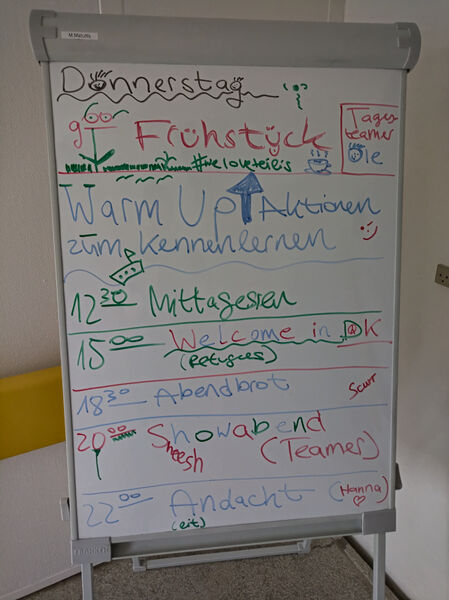 M.Matulla
Donnerstag
9 Frühstück
#weloveteleis
Tages-
teamer
Ole
Warm Up Aktionen
zum Kennenlernen
12 30 Mittagessen
15 00 Welcome in DK
(Refugees)
18 30 Abendbrot
20 00 Showabend
Sheesh (Teamer)
22 00 Andacht (Hanna)
(eit)
FRANKEN